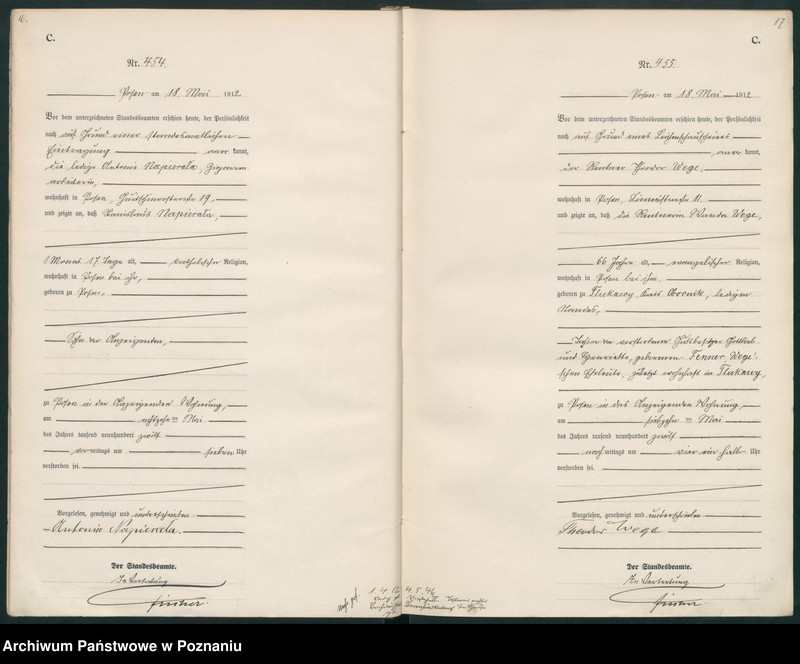 16.
C.
Nr. 454.
Posen am 18. Mai 1912
Vor dem unterzeichneten Standesbeamten erschien heute, der Persönlichkeit
nach auf Grund einer standesamtlichen
Eintragung anerkannt,
die ledige Antonie Napierala, Zigarren
arbeiterin,
wohnhaft in Posen, 19,
und zeigte an, daß Stanislaus Napierala,
1 Monat 17 Tage alt, katholischer Religion,
wohnhaft in Posen bei ihr,
geboren zu Posen,
Sohn der Anzeigenden,
zu Posen in der Anzeigenden Wohnung,
am achtzehnten Mai
des Jahres tausend neunhundert zwölf
vormittags um sieben Uhr
verstorben sei.
Vorgelesen, genehmigt und unterschrieben
Antonie Napierala.
Der Standesbeamte.
In Vertretung
17
C.
Nr. 455.
Posen am 18. Mai 1912
Vor dem unterzeichneten Standesbeamten erschien heute, der Persönlichkeit
nach auf Grund eines Leichenschauscheines
anerkannt,
der Rentner Theodor Wege,
wohnhaft in Posen, 11.
und zeigte an, daß die Rentnerin Wanda Wege,
66 Jahre alt, evangelischer Religion,
wohnhaft in Posen bei ihm,
geboren zu Flukawy, Kreis Obornik, ledigen
Standes,
Tochter der verstorbenen Gutsbesitzer Gottlieb
und Henriette, geborenen Fenner, Wege'
schen Eheleute, zuletzt wohnhaft in Flukawy,
zu Posen in des Anzeigenden Wohnung,
am siebzehnten Mai
des Jahres tausend neunhundert zwölf
nachmittags um vier ein halb Uhr
verstorben sei.
Vorgelesen, genehmigt und unterschrieben
Theodor Wege
Der Standesbeamte.
In Vertretung
1.4.12 4.5.46
Archiwum Państwowe w Poznaniu